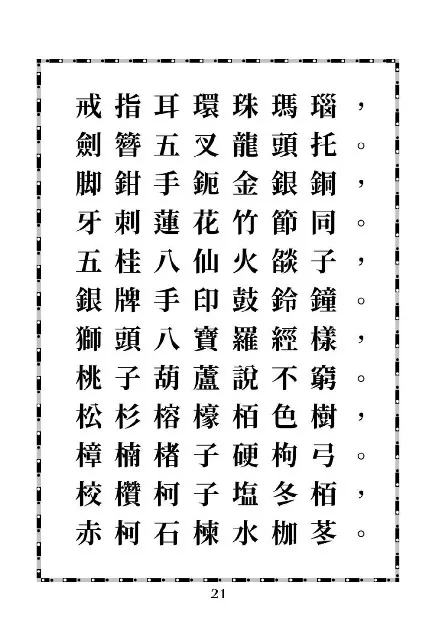 戒指耳環珠瑪瑙，
劍簪五叉龍頭托。
脚鉗手鈪金銀銅，
牙刺蓮花竹節同。
五桂八仙火燄子，
銀牌手印鼓鈴鐘。
獅頭八寶羅經樣，
桃子葫蘆說不窮。
松杉榕檺栢色樹，
樟楠楮子硬枸弓。
校欑柯子塩冬栢，
赤柯石楝水枷苳。
21